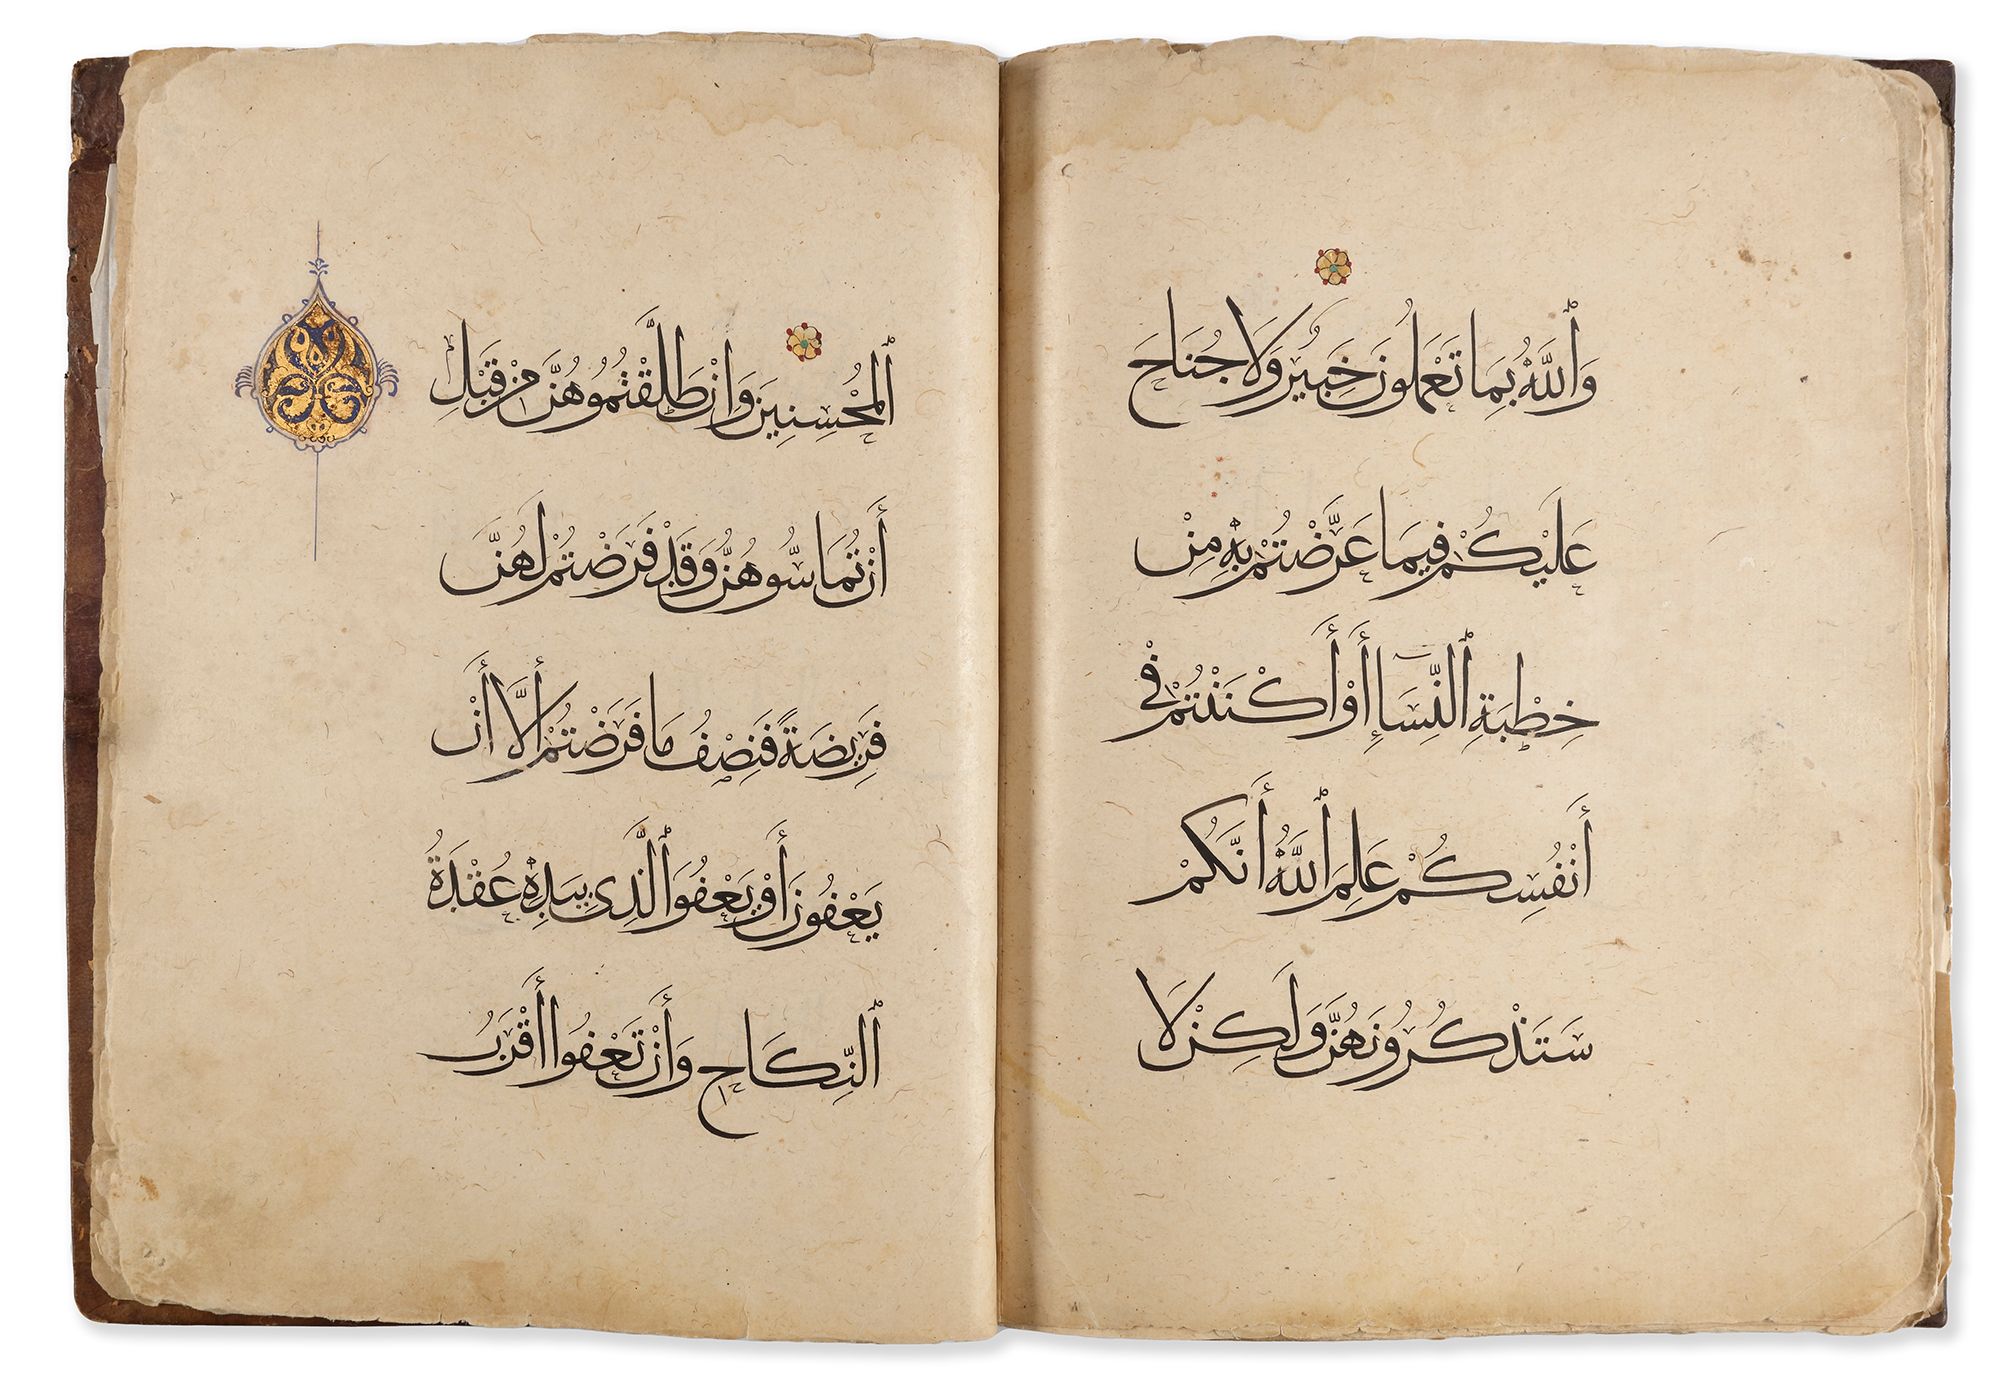 وَٱللَّهُ بِمَا تَعْمَلُونَ خَبِيرٌ وَلَا جُنَاحَ
عَلَيْكُمْ فِيمَا عَرَّضْتُمْ بِهِ مِنْ
خِطْبَةِ ٱلنِّسَآءِ أَوْ أَكْنَنْتُمْ فِي
أَنْفُسِكُمْ عَلِمَ ٱللَّهُ أَنَّكُمْ
سَتَذْكُرُونَهُنَّ وَلَكِنْ لَا
ٱلْمُحْسِنِينَ وَإِنْ طَلَّقْتُمُوهُنَّ مِنْ قَبْلِ
أَنْ تُمَاسُّوهُنَّ وَقَدْ فَرَضْتُمْ لَهُنَّ
فَرِيضَةً فَنِصْفُ مَا فَرَضْتُمْ إِلَّا أَنْ
يَعْفُونَ أَوْ يَعْفُوَ ٱلَّذِى بِيَدِهِ عُقْدَةُ
ٱلنِّكَاحِ وَأَنْ تَعْفُوا أَقْرَبُ